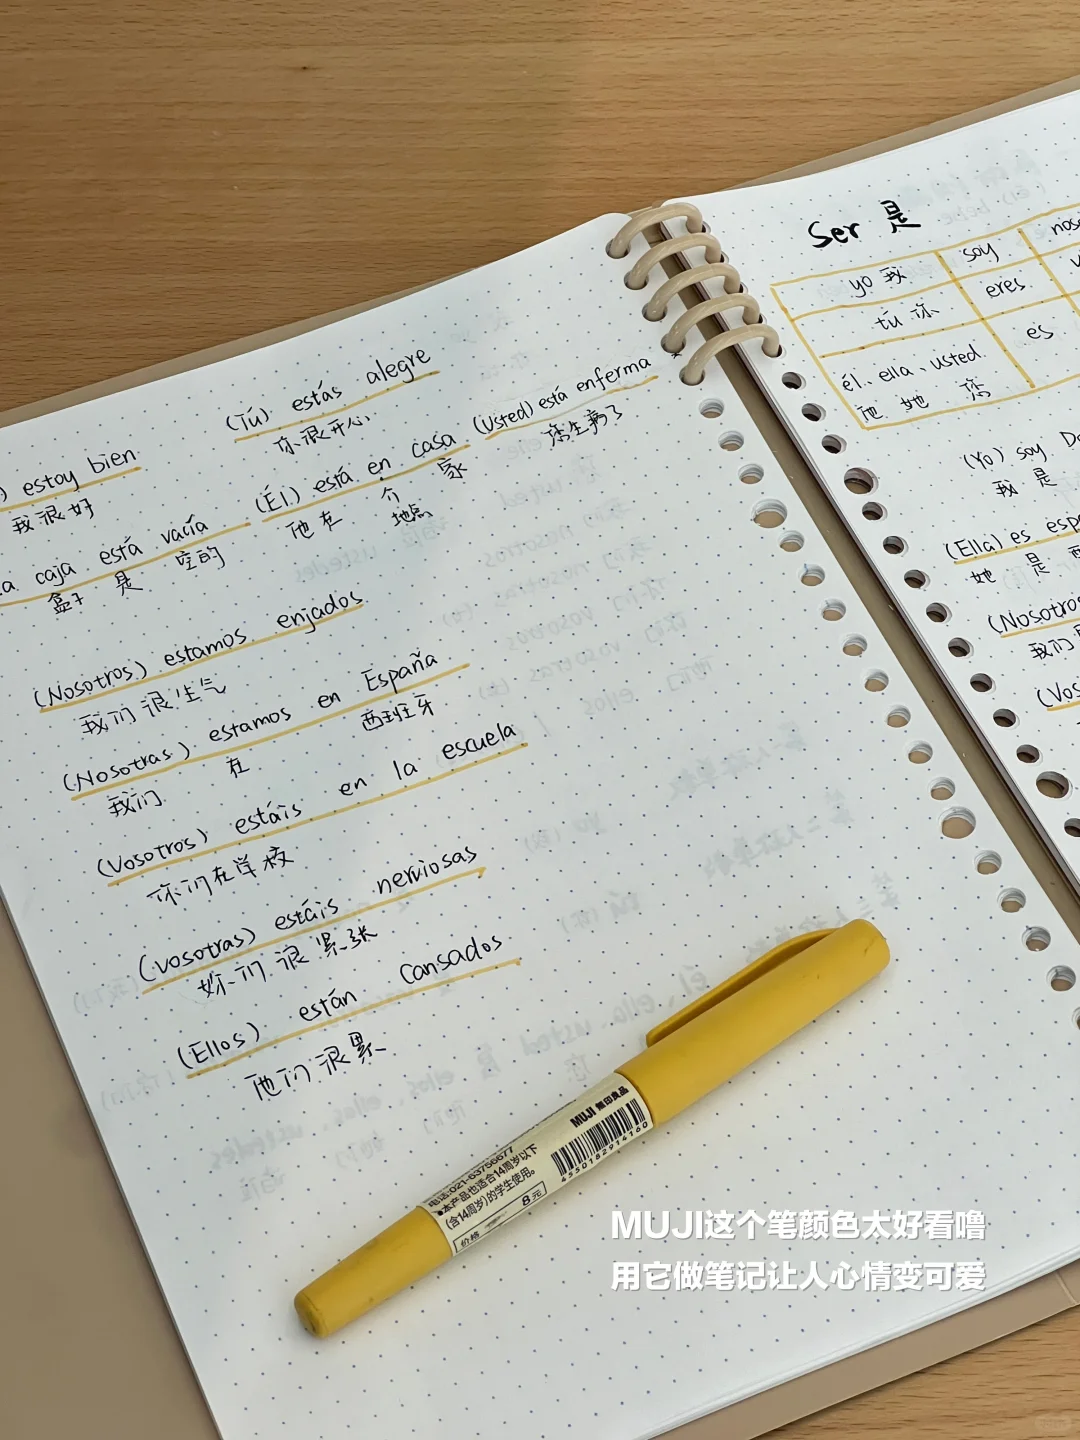 (Tú) estás alegre
你很开心
) estoy bien
我很好
(Él) está en casa
他在 个 家
地点
(Usted) está enferma
您生病了
a caja está vacía
盒子 是 空的
(Nosotros) estamos enjados
我们很生气
(Nosotras) estamos en España
我们 在 西班牙
(Vosotros) estáis en la escuela
你们在学校
(vosotras) estáis nerviosas
妳们很紧张
(Ellos) están cansados
他们很累
Ser 是
yo 我 soy nos
tú 你 eres
él、ella、usted es
他 她 您
(Yo) soy Do
我 是
(Ella) es esp
她 是 西
(Nosotros
我们
(Vos
MUJI 無印良品
4550182914160
电话:021-63756677
*本产品也适合14周岁以下
(含14周岁)的学生使用。
价格 8元
MUJI这个笔颜色太好看噜
用它做笔记让人心情变可爱